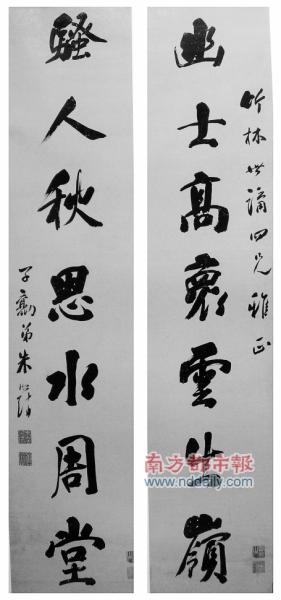 竹林世講四兄雅正
幽士高褱雲出嶺
騷人秋思水周堂
子襄弟朱次琦
南方都市報
www.nddaily.com